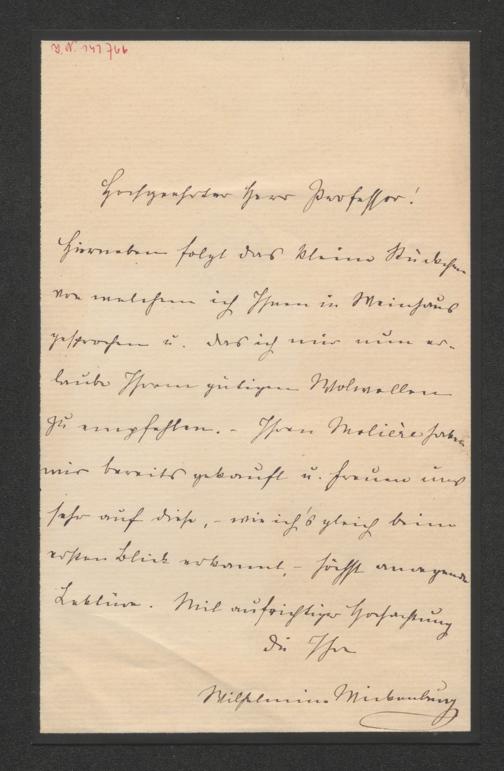 J.N. 141766
Hochgeehrter Herr Professor!
Hierneben folgt das kleine Stückchen
von welchem ich Ihnen in Weinhaus
gesprochen u. das ich mir nun er-
laube Ihrem gütigen Wolwollen
zu empfehlen. – Ihren Molière haben
wir bereits gekauft u. freuen uns
sehr auf diese, – wie ich's gleich beim
ersten Blick erkannt, – höchst anregende
Lektüre. Mit aufrichtiger Hochachtung
die Ihre
Wilhelmine Wickenburg